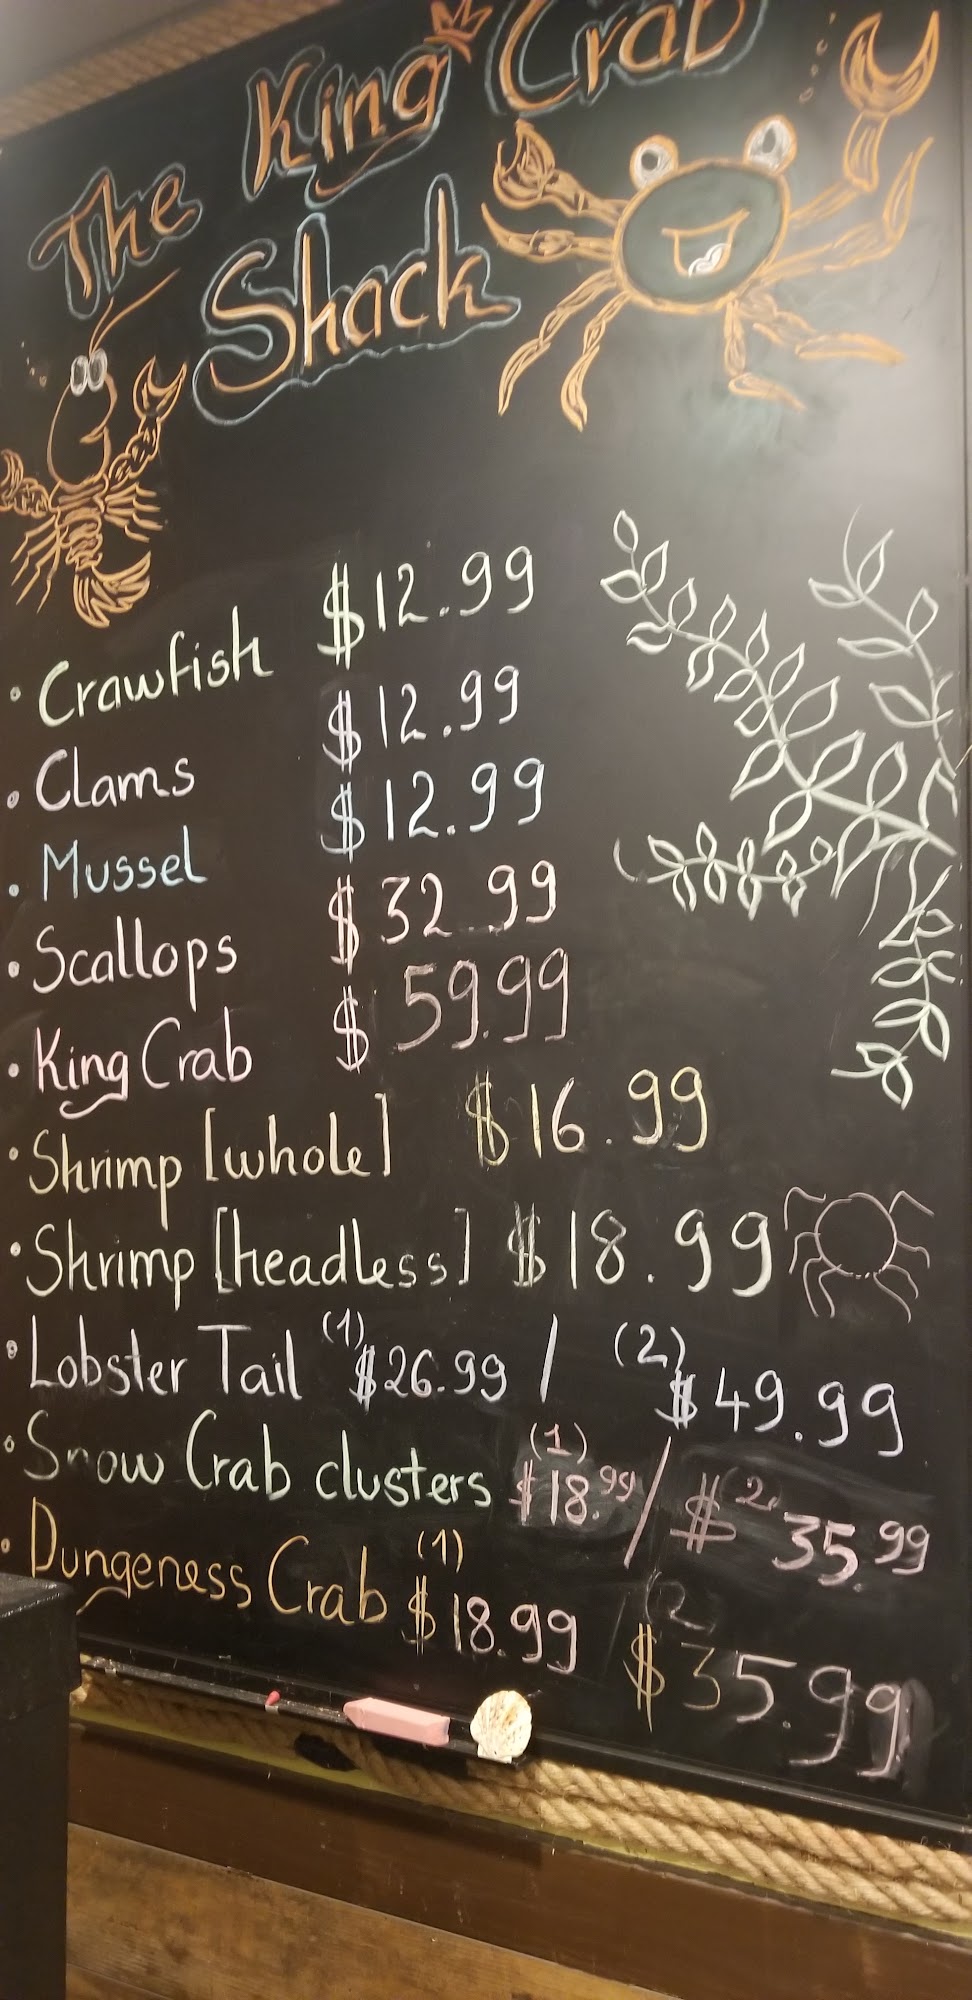 The King Crab
Shack
• Crawfish $12.99
• Clams $12.99
• Mussel $12.99
• Scallops $32.99
• King Crab $59.99
• Shrimp [whole] $16.99
• Shrimp [headless] $18.99
• Lobster Tail (1) $26.99 / (2) $49.99
• Snow Crab clusters (1) $18.99 / $ 2 35.99
• Dungeness Crab (1) $18.99 / (2) $35.99